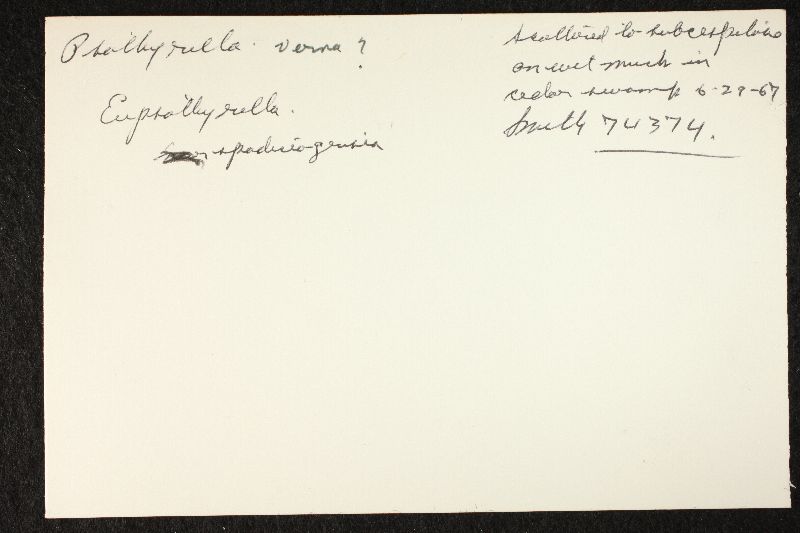 Psathyrella. verna?
Eupsathyrella.
spadiceogrisea
scattered to subcespitose
on wet muck in
cedar swamp 6-29-67
Smith 74374.